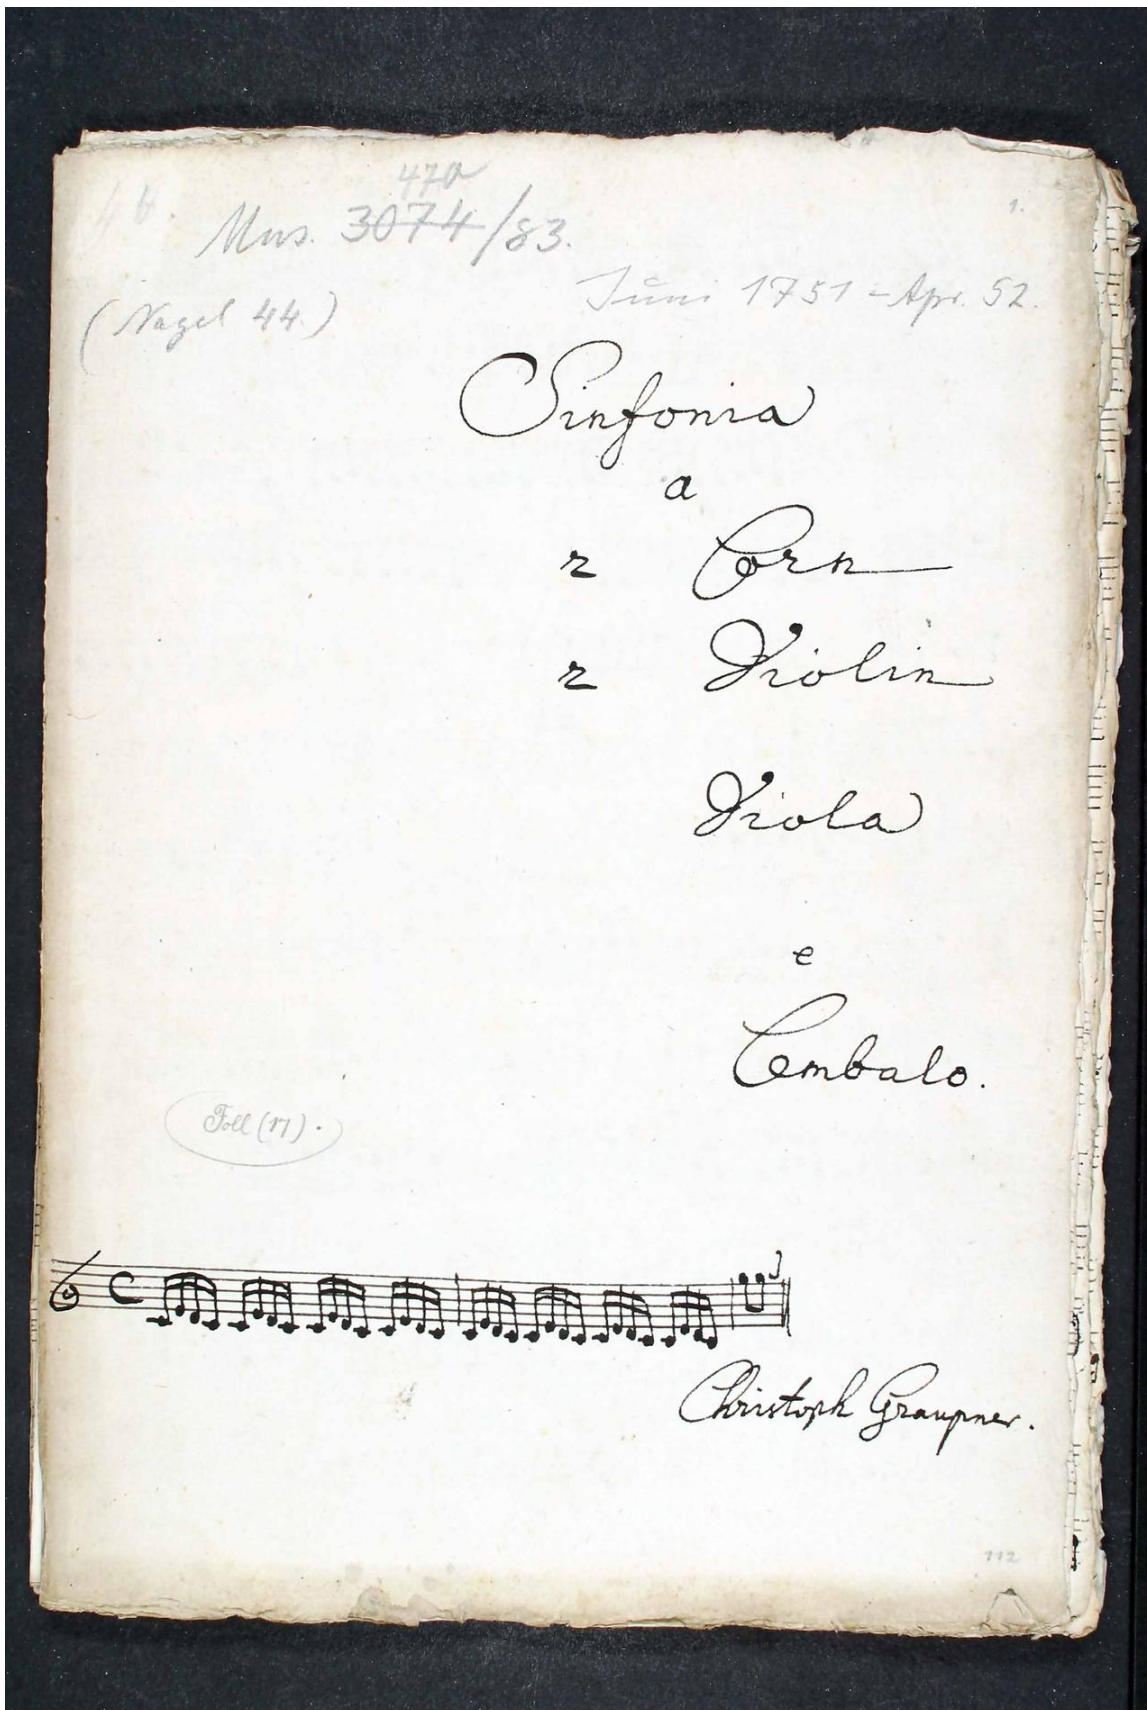 470
Mus. 3074/83.
1.
(Nagel 44.)
Juni 1751 - Apr. 52.
Sinfonia
a
2 Corn
2 Violin
Viola
e
Cembalo.
Foll (17).
Christoph Graupner.
112